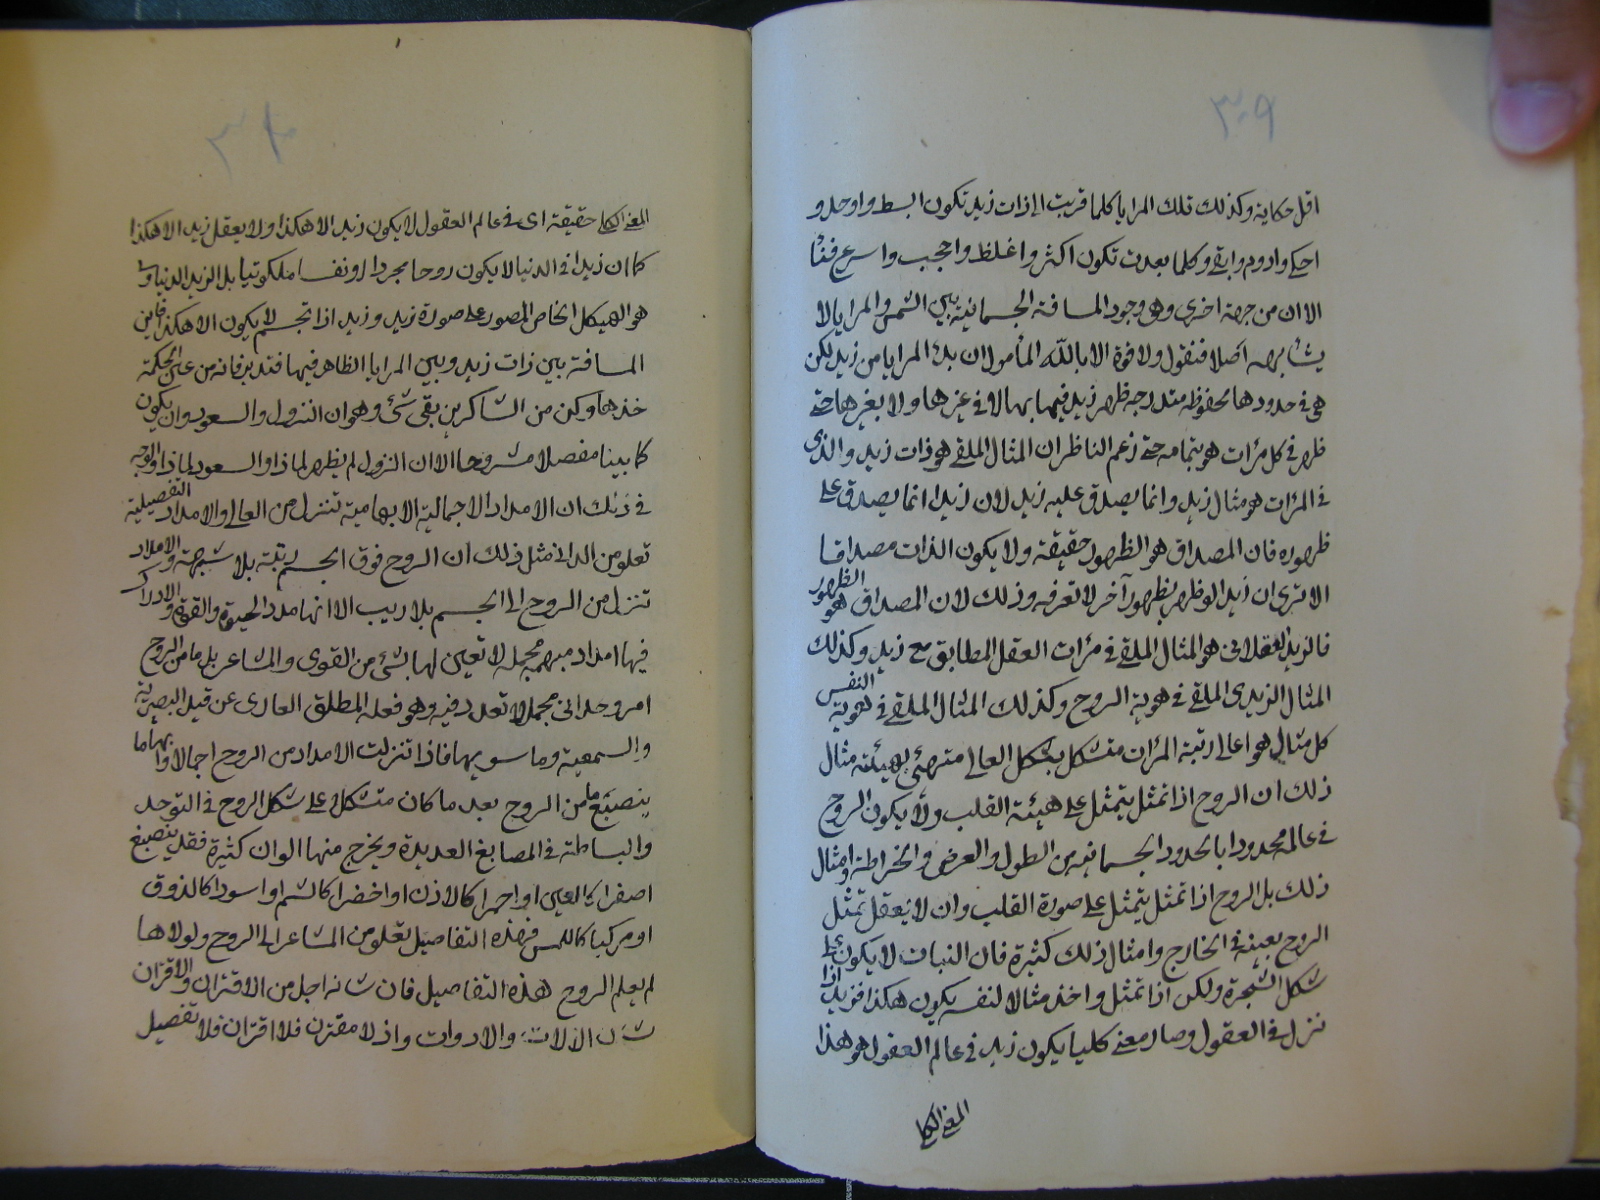 ٣٠٩
اقل حكاية وكذلك تلك المرايا كلما قربت الى ذات زيد تكون ابسط واوحد و
احكى وادوم وابقى وكلما بعدت تكون اكثر واغلظ واحجب واسرع فناء
الا ان من جهة اخرى وهى وجود المسافة الجسمانية بين الشمس والمرايا لا
يشابهه اصلا فنقول ولا قوة الا بالله المأمول ان بدء المرايا من زيد لكن
هى فى حدودها محفوظة متدرجه ظهر زيد فيها بها لا فى غيرها ولا بغيرها حتى
ظهر فى كل مرٰات هو بتمامه حتى زعم الناظر ان المثال الملقى هو ذات زيد والذى
فى المرٰات هو مثال زيد وانما يصدق عليه زيد لان زيدا انما يصدق على
ظهوره فان المصداق هو الظهور حقيقة ولا يكون الذات مصداقا
الا ترى ان زيدا لو ظهر بظهور آخر لا تعرفه وذلك لان المصداق هو الظهور
فالزيد العقلانى هو المثال الملقى فى مرٰات العقل المطابق مع زيد وكذلك
المثال الزيدى الملقى فى هوية الروح وكذلك المثال الملقى فى هوية النفس
كل مثال هو اعالى رتبة المرٰات متشكل بشكل العالى متهيئ بهيئته مثال
ذلك ان الروح اذا تمثل يتمثل على هيئة القلب ولا يكون الروح
فى عالمه محدودا بالحدود الجسمانيه من الطول والعرض والخراطة وامثال
ذلك بل الروح اذا تمثل يتمثل على صورة القلب وان لا يعقل تمثل
الروح بعينه فى الخارج وامثال ذلك كثيرة فان النبات لا يكون على
شكل الشجرة ولكن اذا تمثل واخذ مثالا لنفسه يكون هكذا فزيد اذا
نزل فى العقول وصار معنى كليا يكون زيد فى عالم العقول هو هذا
المعنى الكلى
٣١٠
المعنى الكلى حقيقة اى فى عالم العقول لا يكون زيد الا هكذا ولا يعقل زيد الا هكذا
كما ان زيدا فى الدنيا لا يكون روحا مجردا او نفسا ملكوتيا بل الزيد الدنياوى
هو الهيكل الخاص المصور على صورة زيد وزيد اذا تجسم لا يكون الا هكذا فاين
المسافة بين ذات زيد وبين المرايا الظاهر فيها فتدبر فانه من عين الحكمة
خذها وكن من الشاكرين بقى شئ وهو ان النزول والصعود وان يكون
كما بينا مفصلا مشروحا الا ان النزول لم يظهر لماذا والصعود لماذا والوجه
فى ذلك ان الامداد الاجمالية الابهامية تتنزل من العالى والامداد التفصيلية
تعلو من الدانى مثل ذلك ان الروح فوق الجسم رتبة بلا شبهة والامداد
تتنزل من الروح الى الجسم بلا ريب الا انها مدد الحيوة والقوة والادراك
فيها امداد مبهمه مجمله لا تعين لها بشئ من القوى والمشاعر بل ما من الروح
امر وحدانى مجمل لا تعدد فيه وهو فعله المطلق العارى عن قيد البصرية
والسمعية وما سويهما فاذا تنزلت الامداد من الروح اجمالا وابهاما
ينصبغ ما من الروح بعد ما كان متشكلا على شكل الروح فى التوحد
والبساطة فى المصابغ العديدة ويخرج منها الوان كثيرة فقد ينصبغ
اصفرا كالعين او احمرا كالاذن او اخضرا كالشم او اسودا كالذوق
او مركبا كاللمس فهذه التفاصيل تعلو من المشاعر الى الروح ولولاها
لم يعلم الروح هذه التفاصيل فان شانه اجل من الاقتران والاقتران
شان الالات والادوات واذ لا مقترن فلا اقتران فلا تفصيل